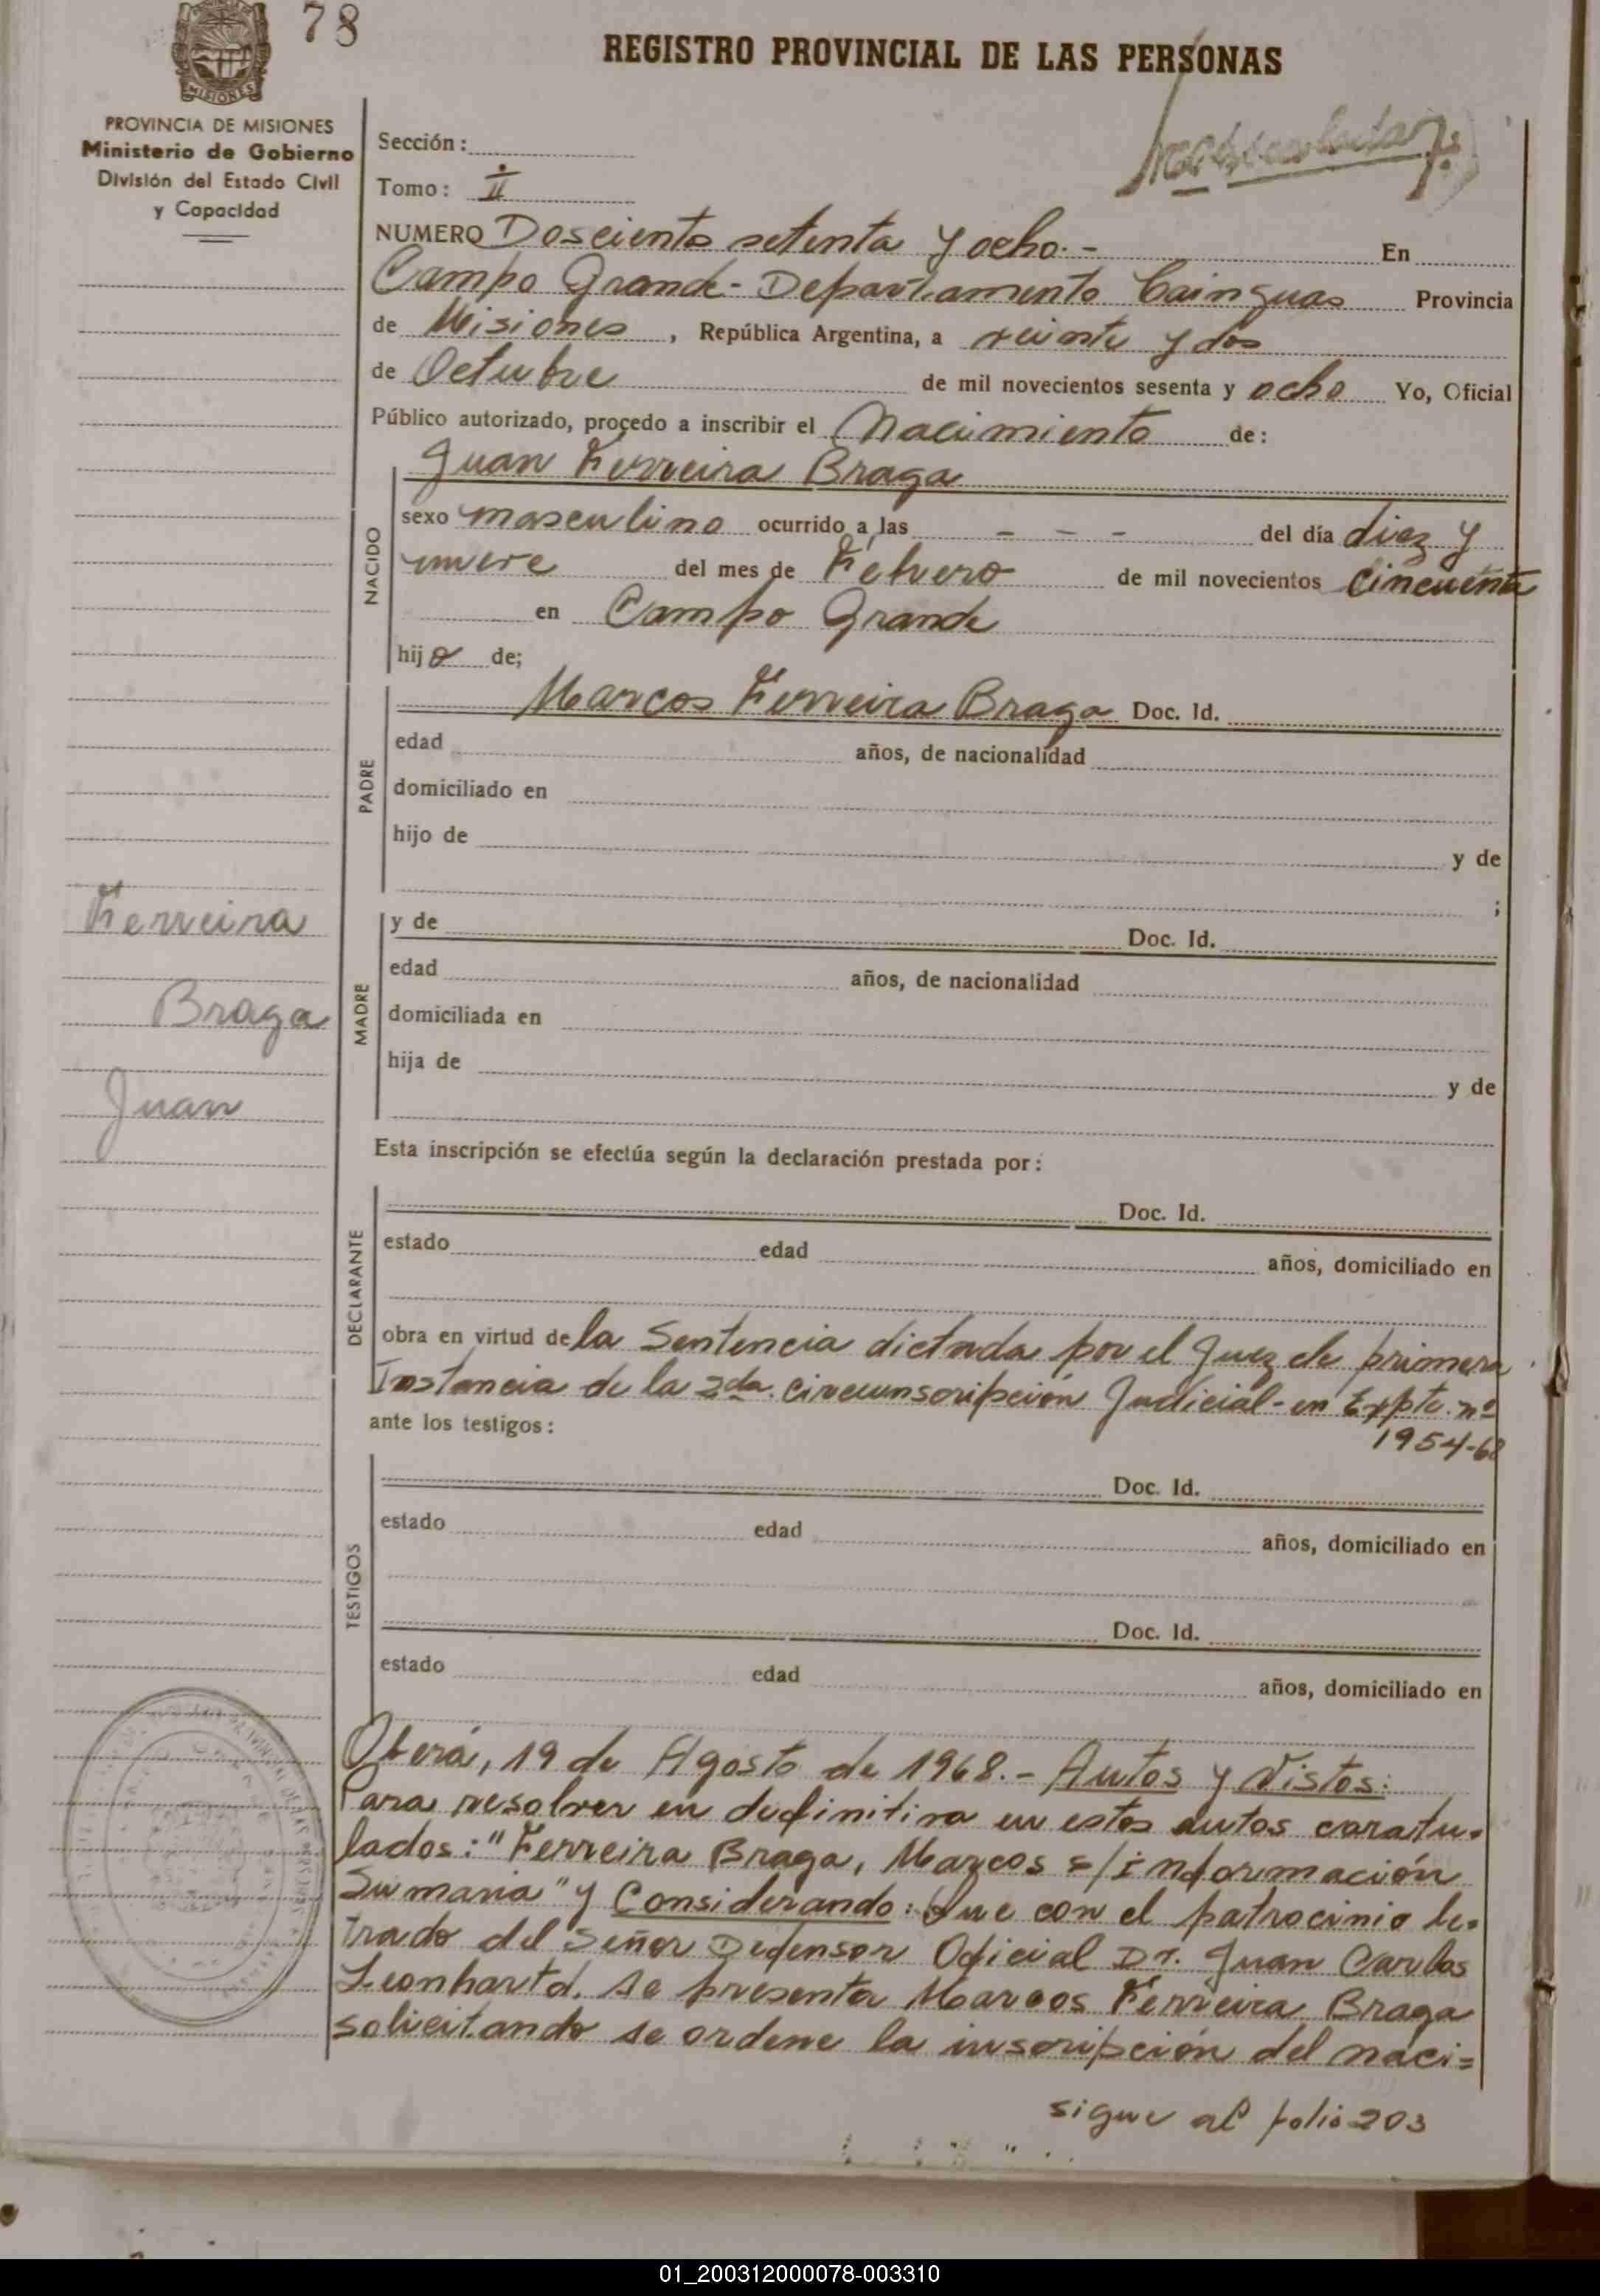 78
REGISTRO PROVINCIAL DE LAS PERSONAS
MISIONES
PROVINCIA DE MISIONES
Ministerio de Gobierno
División del Estado Civil
y Capacidad
Sección:
Tomo: II
NUMERO Dosciento setenta y ocho.- En
Campo Grande - Departamento Cainguas Provincia
de Misiones, República Argentina, a veinte y dos
de Octubre de mil novecientos sesenta y ocho Yo, Oficial
Público autorizado, procedo a inscribir el Nacimiento de:
Juan Ferreira Braga
NACIDO
sexo masculino ocurrido a las - - - del día diez y
nueve del mes de Febrero de mil novecientos cincuenta
en Campo Grande
hijo de;
PADRE
Marcos Ferreira Braga Doc. Id.
edad años, de nacionalidad
domiciliado en
hijo de y de
;
Ferreira
Braga
Juan
MADRE
y de Doc. Id.
edad años, de nacionalidad
domiciliada en
hija de y de
Esta inscripción se efectúa según la declaración prestada por:
DECLARANTE
Doc. Id.
estado edad años, domiciliado en
obra en virtud de la Sentencia dictada por el Juez de primera
Instancia de la 2da. circunscripción Judicial - en Expte. nº
1954-68
ante los testigos:
TESTIGOS
Doc. Id.
estado edad años, domiciliado en
Doc. Id.
estado edad años, domiciliado en
Oberá, 19 de Agosto de 1968.- Autos y Vistos:
Para resolver en definitiva en estos autos caratu-
lados: "Ferreira Braga, Marcos s/información
Sumaria" y Considerando: Que con el patrocinio le-
trado del Señor Defensor Oficial Dr. Juan Carlos
Leonhartd. se presenta Marcos Ferreira Braga
solicitando se ordene la inscripción del naci=
sigue al folio 203
01_200312000078-003310